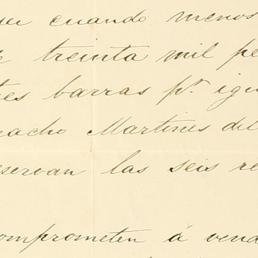 cuando menos
treinta mil pe
es barras pr. igu
nacho Martines del
servan las seis re
omprometen á vend